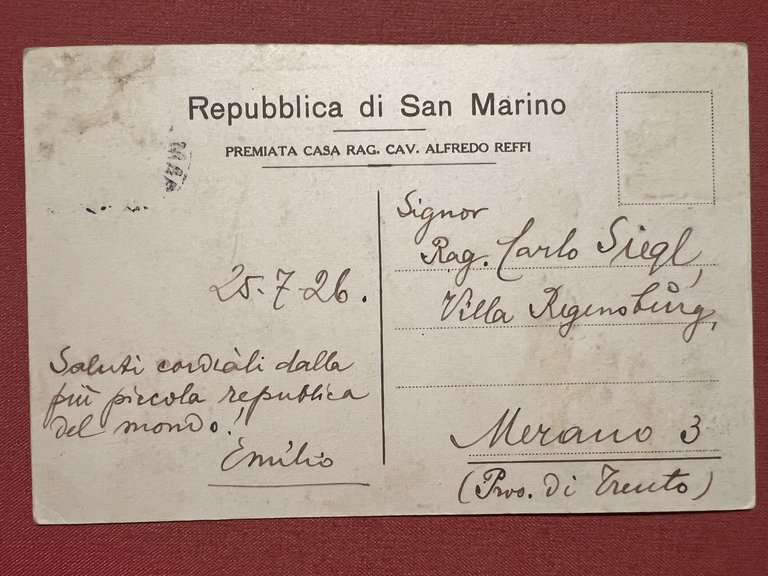 Repubblica di San Marino
PREMIATA CASA RAG. CAV. ALFREDO REFFI
25-7-26.
Saluti cordiali dalla
più piccola republica
del mondo!
Emilio
Signor
Rag. Carlo Siegl,
Villa Regensburg,
Merano 3
(Prov. di Trento)